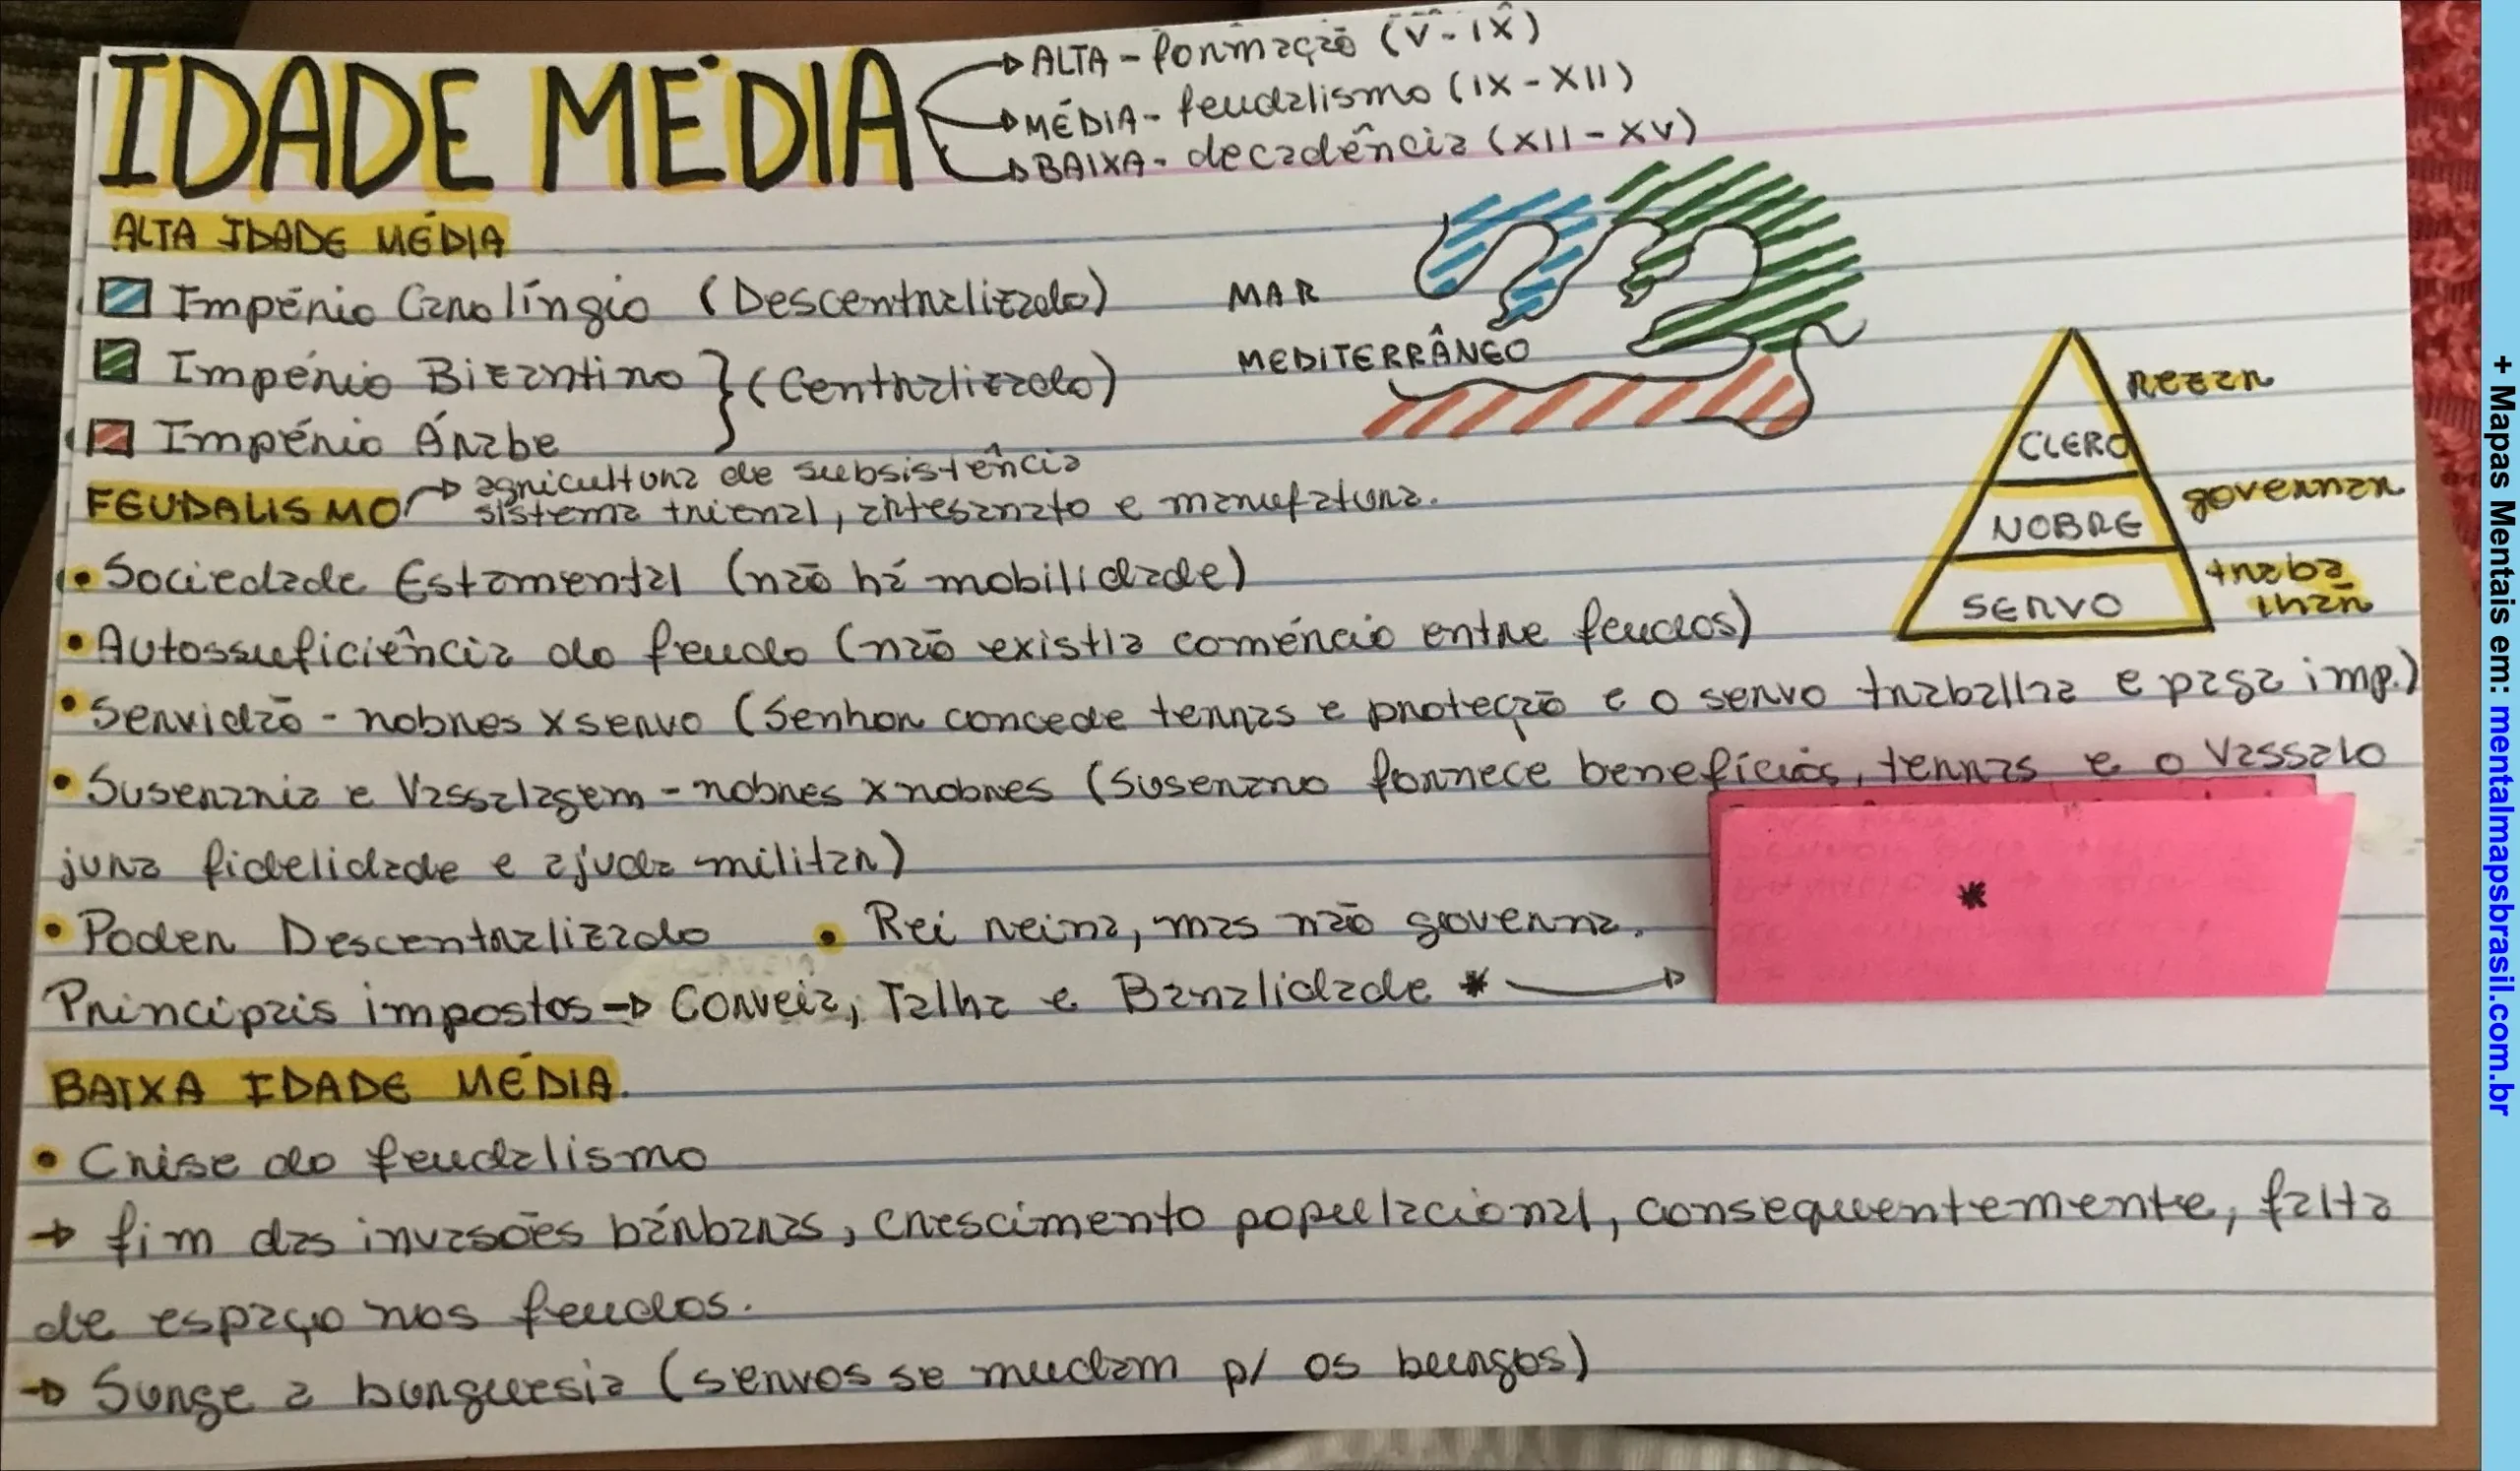 IDADE MÉDIA
ALTA - formação (V - IX)
MÉDIA - feudalismo (IX - XII)
BAIXA - decadência (XII - XV)
ALTA IDADE MÉDIA
Império Carolíngio (Descentralizado)
Império Bizantino } (Centralizado)
Império Árabe
MAR
MEDITERRÂNEO
FEUDALISMO → agricultura de subsistência
sistema trienal, artesanato e manufatura.
CLERO rezar
NOBRE governar
SERVO traba
lhar
• Sociedade Estamental (não há mobilidade)
• Autossuficiência do feudo (não existia comércio entre feudos)
• Servidão - nobres x servo (Senhor concede terras e proteção e o servo trabalha e paga imp.)
• Suserania e Vassalagem - nobres x nobres (Suserano fornece benefícios, terras e o vassalo
jura fidelidade e ajuda militar)
• Poder Descentralizado • Rei reina, mas não governa.
Principais impostos → Corveia, Talha e Banalidade * →
*
BAIXA IDADE MÉDIA.
• Crise do feudalismo
→ fim das invasões bárbaras, crescimento populacional, consequentemente, falta
de espaço nos feudos.
→ Surge a burguesia (servos se mudam p/ os burgos)
+ Mapas Mentais em: mentalmapsbrasil.com.br